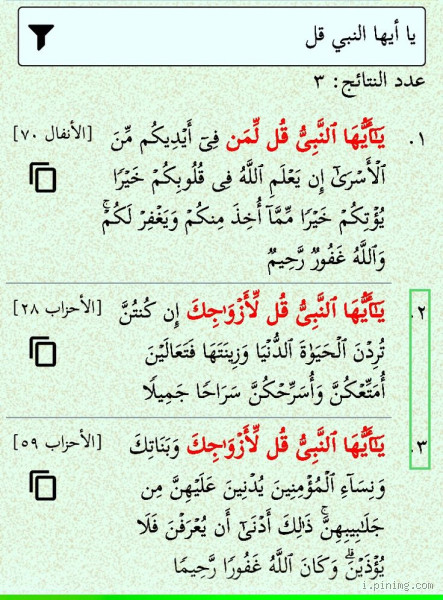 يا أيها النبي قل
عدد النتائج: ٣
١. يَـٰٓأَيُّهَا ٱلنَّبِىُّ قُل لِّمَن فِىٓ أَيْدِيكُم مِّنَ [الأنفال ٧٠]
ٱلْأَسْرَىٰٓ إِن يَعْلَمِ ٱللَّهُ فِى قُلُوبِكُمْ خَيْرًا
يُؤْتِكُمْ خَيْرًا مِّمَّآ أُخِذَ مِنكُمْ وَيَغْفِرْ لَكُمْ ۗ
وَٱللَّهُ غَفُورٌ رَّحِيمٌ
٢. يَـٰٓأَيُّهَا ٱلنَّبِىُّ قُل لِّأَزْوَٰجِكَ إِن كُنتُنَّ [الأحزاب ٢٨]
تُرِدْنَ ٱلْحَيَوٰةَ ٱلدُّنْيَا وَزِينَتَهَا فَتَعَالَيْنَ
أُمَتِّعْكُنَّ وَأُسَرِّحْكُنَّ سَرَاحًا جَمِيلًا
٣. يَـٰٓأَيُّهَا ٱلنَّبِىُّ قُل لِّأَزْوَٰجِكَ وَبَنَاتِكَ [الأحزاب ٥٩]
وَنِسَآءِ ٱلْمُؤْمِنِينَ يُدْنِينَ عَلَيْهِنَّ مِن
جَلَـٰبِيبِهِنَّ ۚ ذَٰلِكَ أَدْنَىٰٓ أَن يُعْرَفْنَ فَلَا
يُؤْذَيْنَ ۗ وَكَانَ ٱللَّهُ غَفُورًا رَّحِيمًا
i.pinimg.com